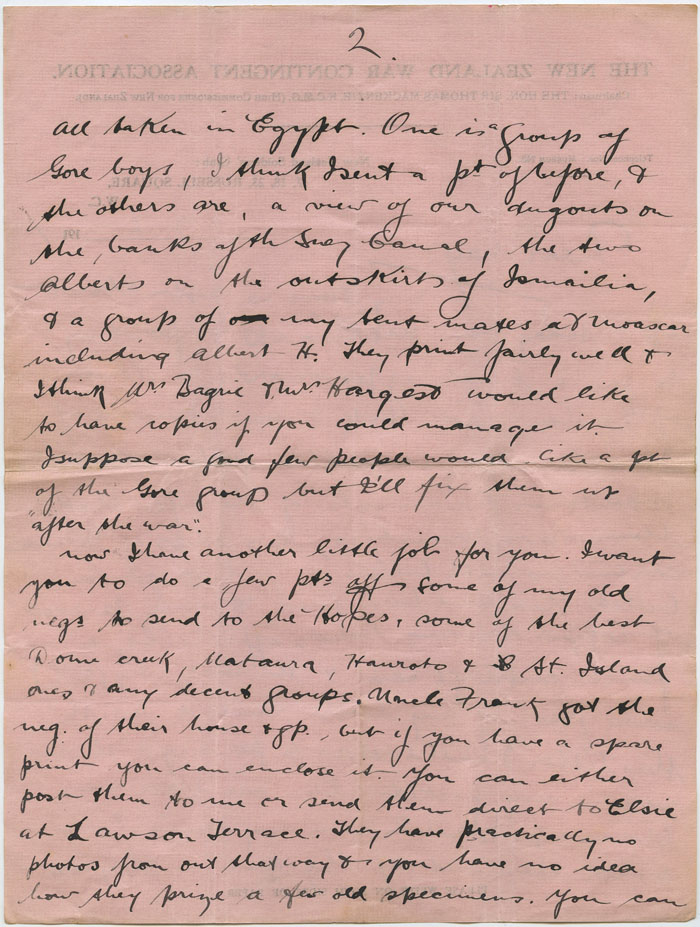 2
THE NEW ZEALAND WAR CONTINGENT ASSOCIATION.
all taken in Egypt. One is a group of
Gore boys, I think I sent a pt of before, &
the others are, a view of our dugouts on
the banks of th Suez Canal, the two
alberts on the outskirts of Ismailia,
& a group of my tent mates at Moascar
including albert H. They print fairly well &
I think Mrs Bagrie & Mrs Hargest would like
to have copies if you could manage it.
I suppose a good few people would like a pt
of the Gore group but I'll fix them up
"after the war".
now I have another little job for you. I want
you to do a few pts off some of my old
negs to send to the Hopes, some of the best
Dome creek, Mataura, Hauroto & St. Island
ones & any decent groups. Uncle Frank got the
neg. of their house & gp. but if you have a spare
print you can enclose it. You can either
post them to me or send them direct to Elsie
at Lawson Terrace. They have practically no
photos from out that way & you have no idea
how they prize a few old specimens. You can